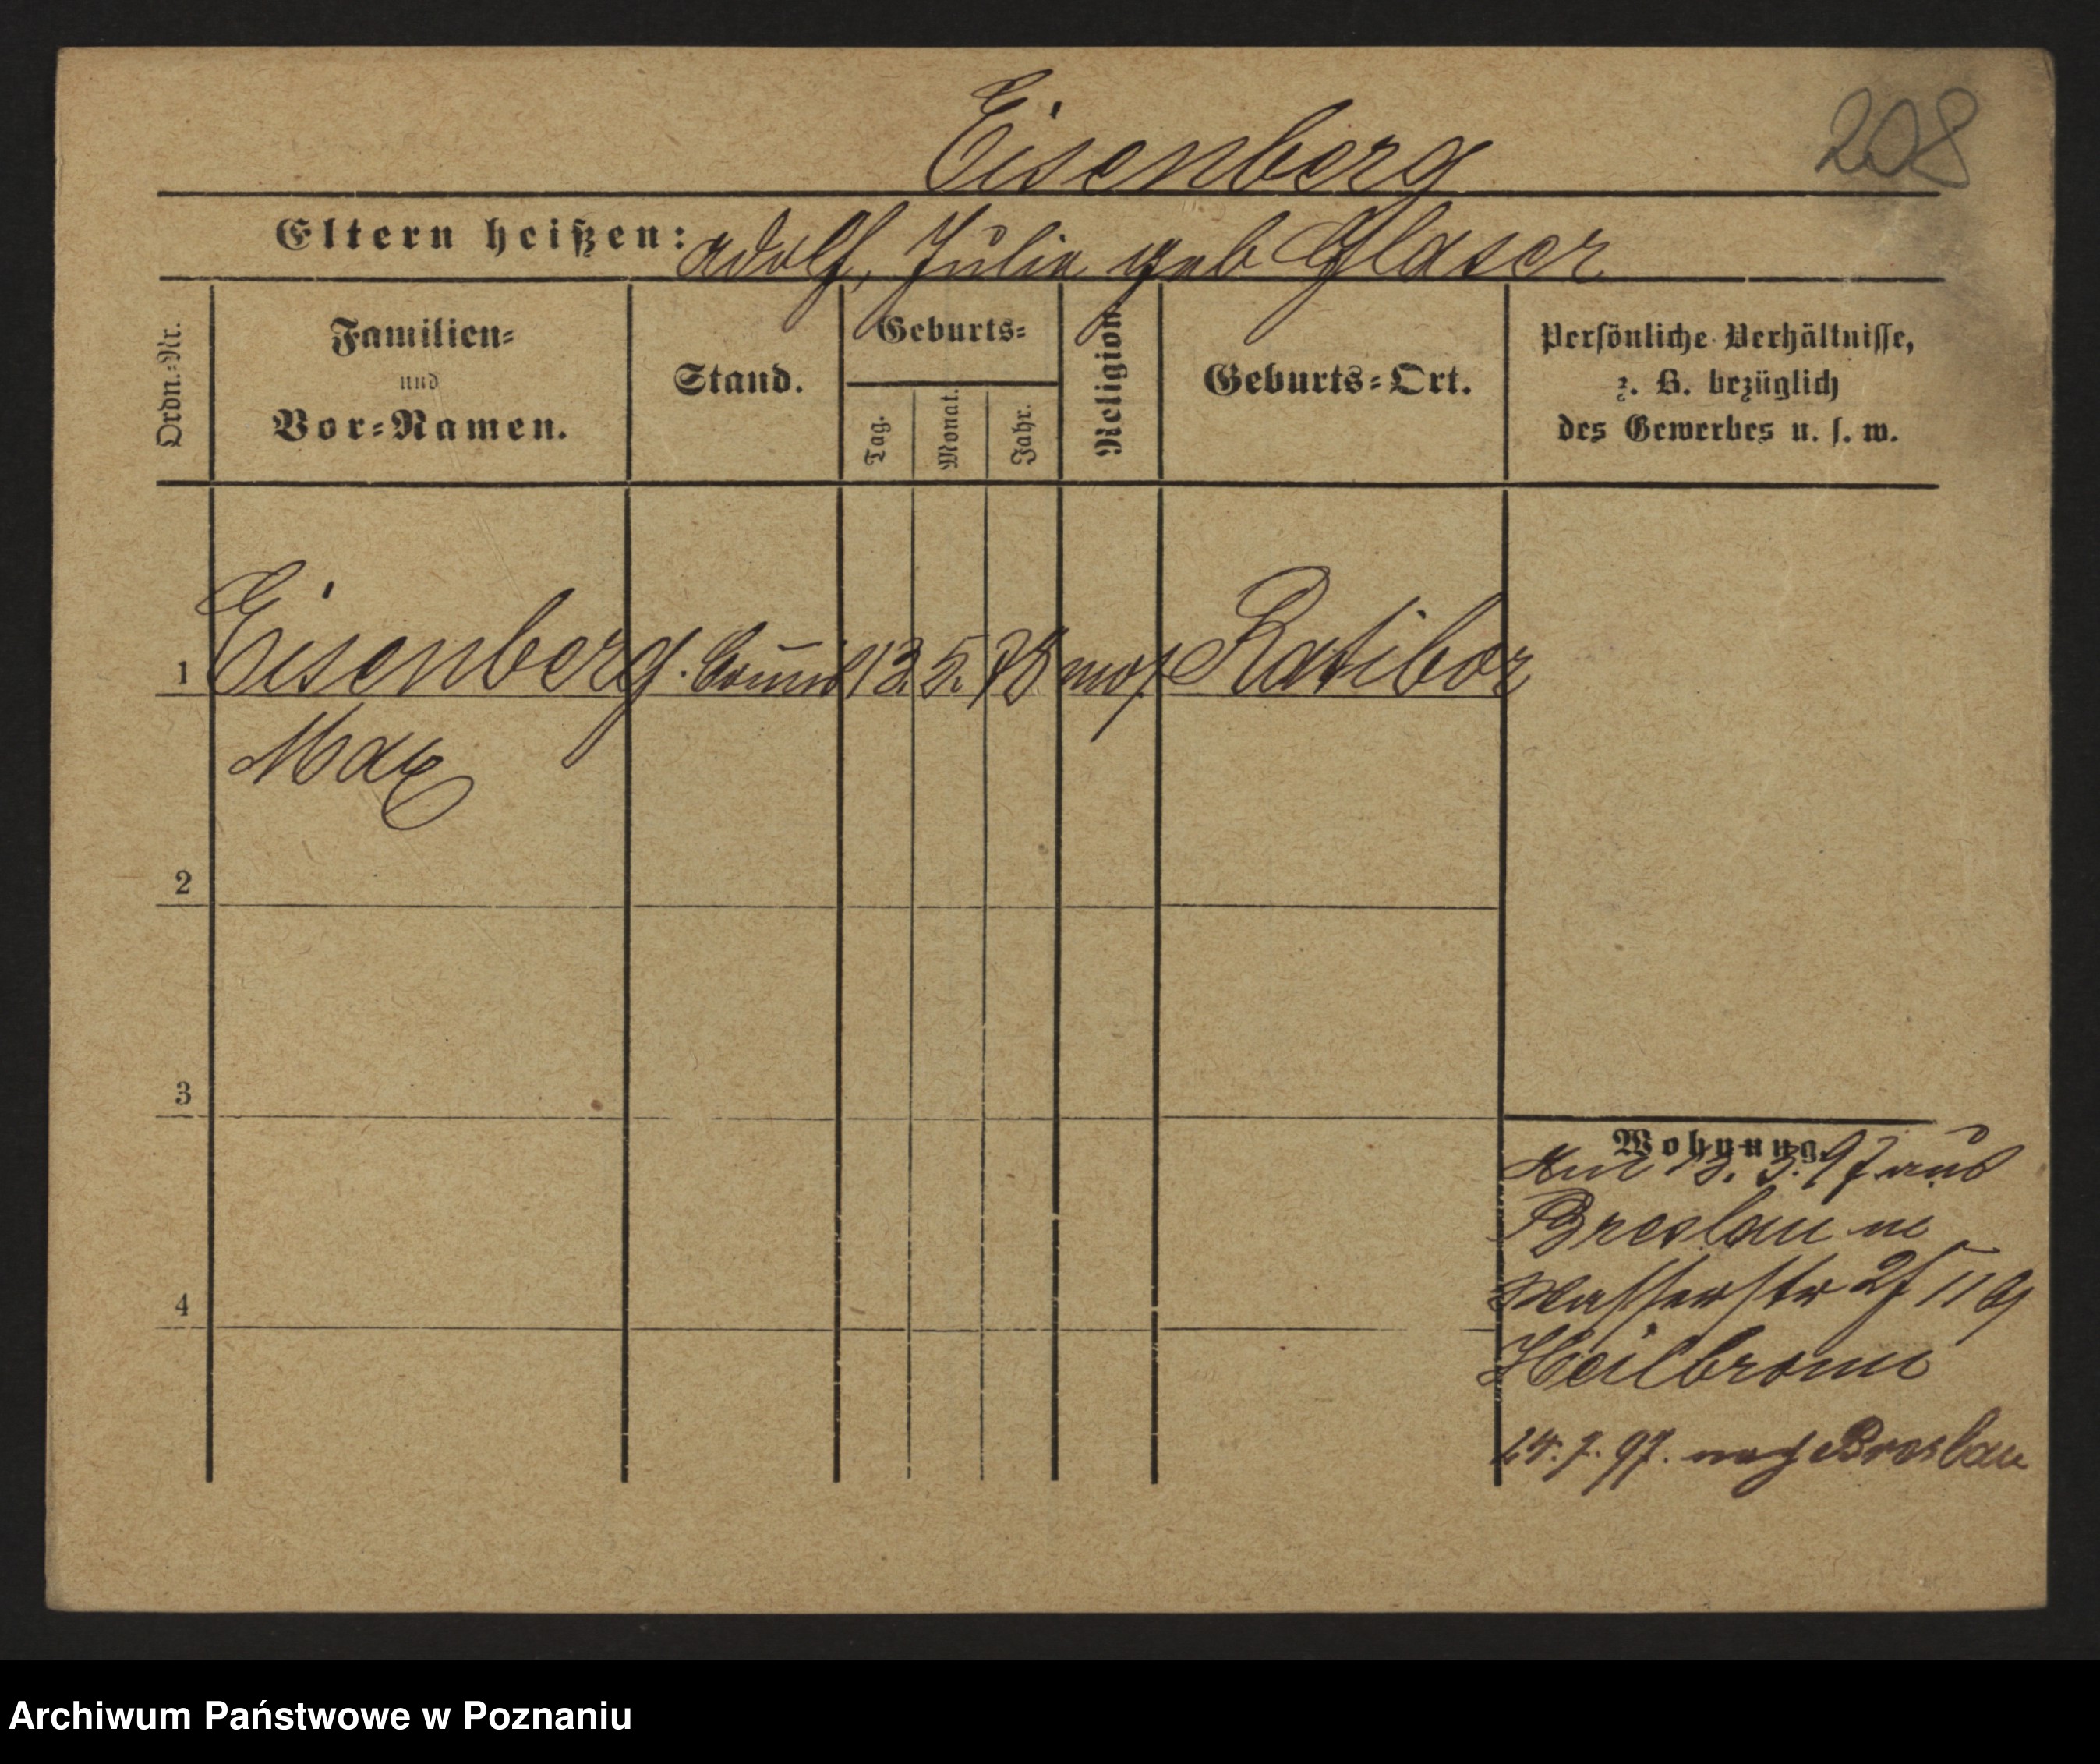 Eisenberg
208
Eltern heißen: Adolf, Julie geb Glaser
Ordn.-Nr.
Familien-
und
Vor-Namen.
Stand.
Geburts-
Tag.
Monat.
Jahr.
Religion
Geburts-Ort.
Persönliche Verhältnisse,
z. B. bezüglich
des Gewerbes u. s. w.
1 Eisenberg. Commis 13 5. 78 mos Ratibor
Max
2
3
4
Wohnung.
13. 3. 97 aus
Breslau
Wasserstr 2/ II
Heilbronn
24. 7. 97. nach Breslau
Archiwum Państwowe w Poznaniu